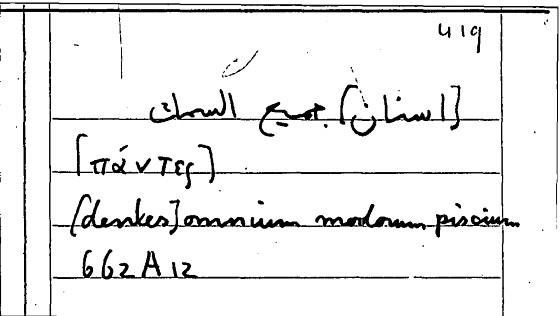 419
[اسنان] جميع السمك
[πάντες]
[dentes] omnium modorum piscium
662A12